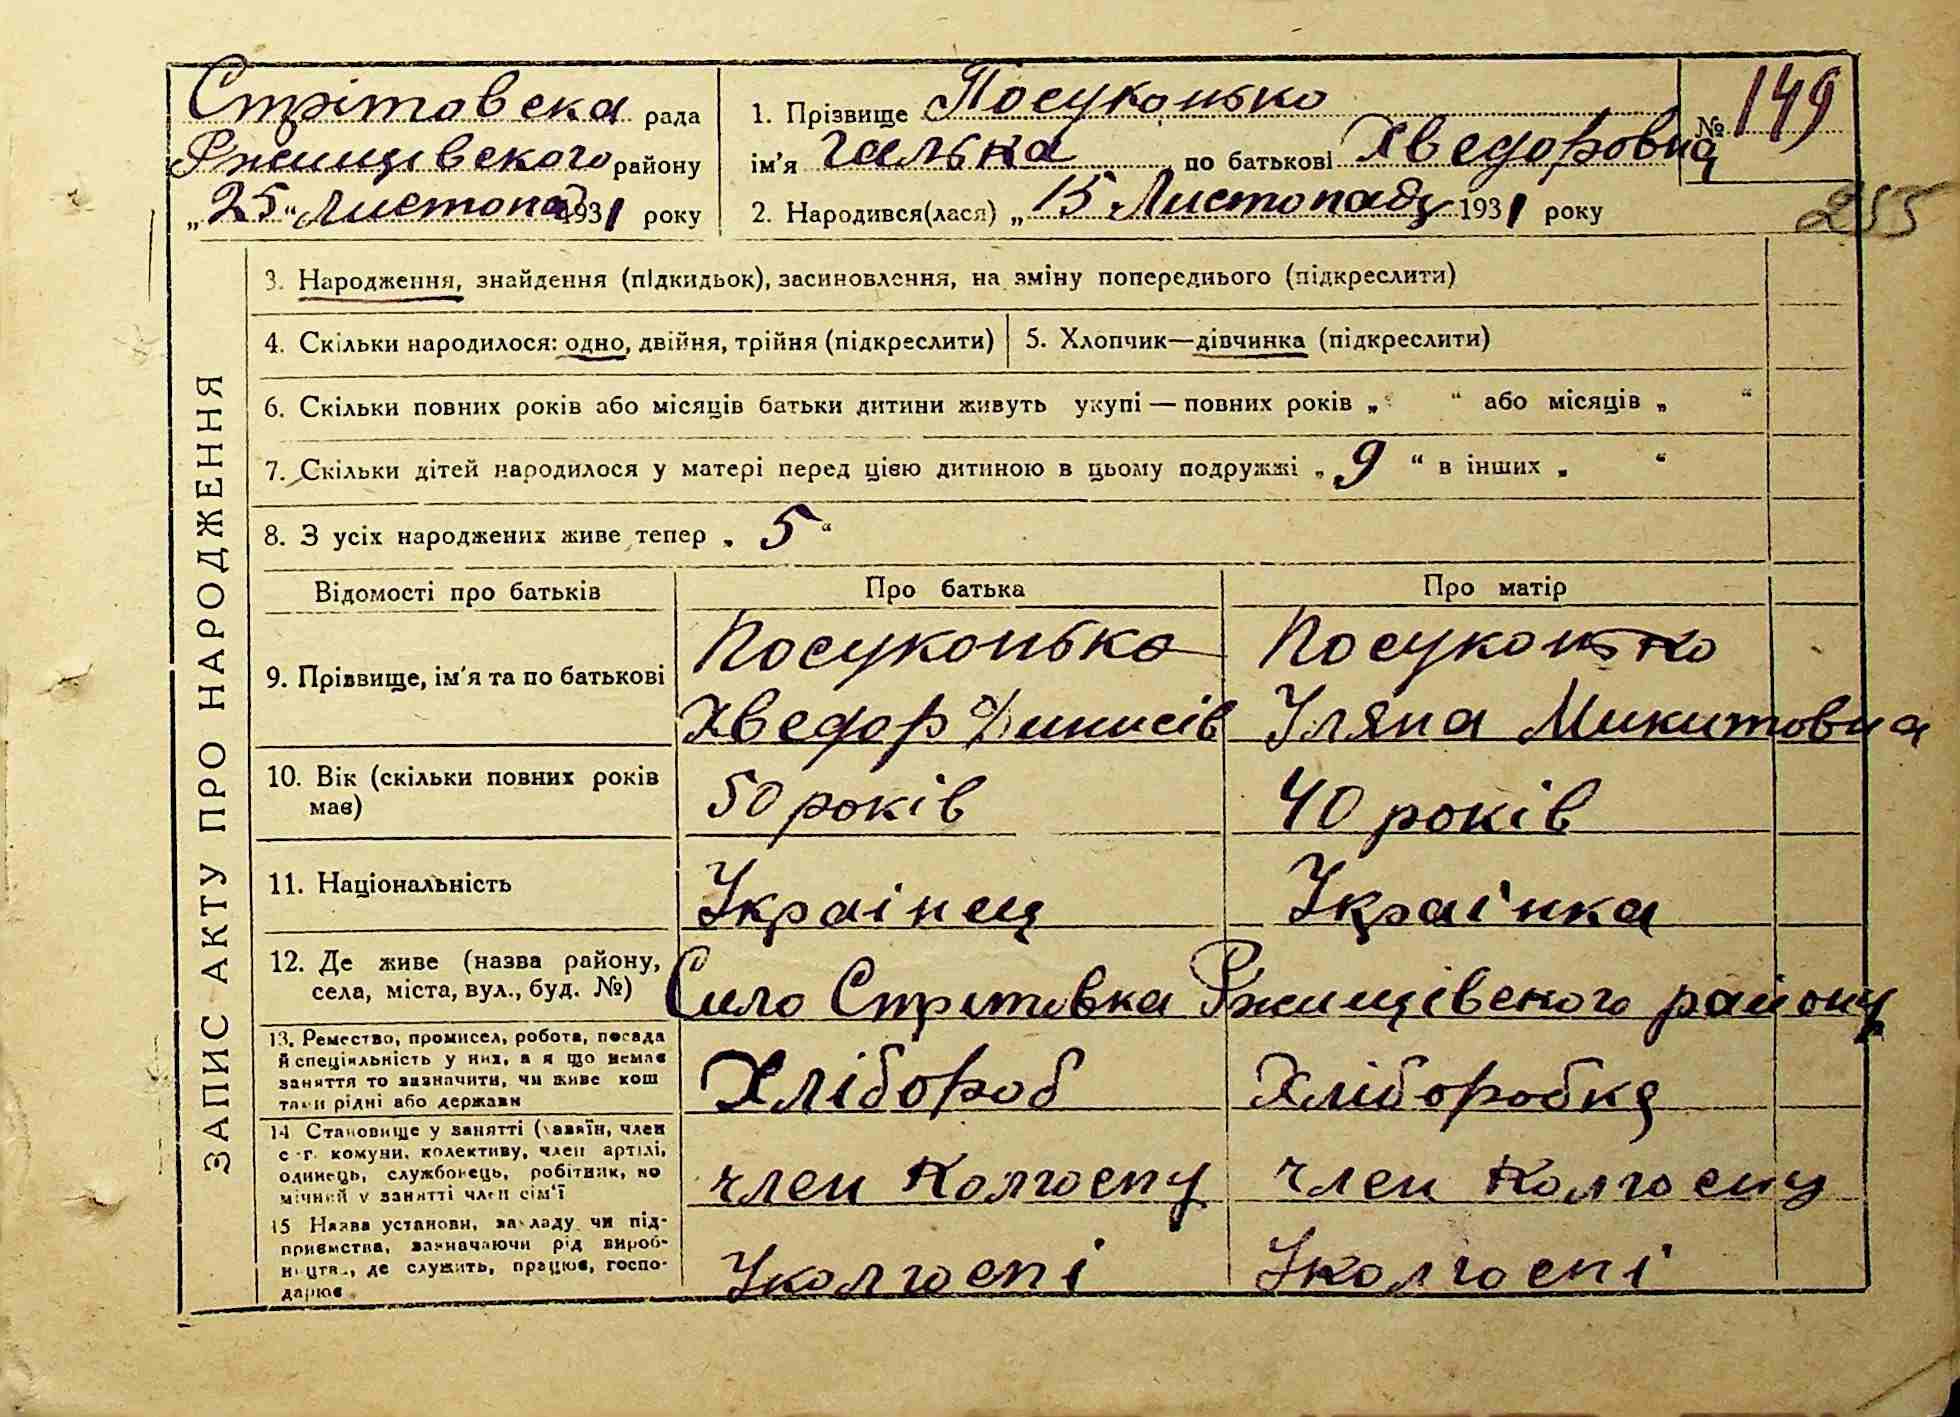 Стрітовска рада
Ржищівского району
„25“ Листопад 1931 року
1. Прізвище Посуконько
№ 149
ім'я Галька по батькові Хведоровна
2. Народився(лася) „15 Листопаду 1931 року
255
ЗАПИС АКТУ ПРО НАРОДЖЕННЯ
3. Народження, знайдення (підкидьок), засиновлення, на зміну попереднього (підкреслити)
4. Скільки народилося: одно, двійня, трійня (підкреслити)
5. Хлопчик—дівчинка (підкреслити)
6. Скільки повних років або місяців батьки дитини живуть укупі — повних років „ “ або місяців „ “
7. Скільки дітей народилося у матері перед цією дитиною в цьому подружжі „9“ в інших „ “
8. З усіх народжених живе тепер „5“
Відомості про батьків
Про батька
Про матір
9. Прізвище, ім'я та по батькові
Посуконько
Хведор Динисів
Посуконько
Уляна Микитовна
10. Вік (скільки повних років
має)
50 років
40 років
11. Національність
Украінец
Украінка
12. Де живе (назва району,
села, міста, вул., буд. №)
Сило Стритовка Ржищівского району
13. Ремество, промисел, робота, посада
й спеціяльність у них, а я що немає
заняття то зазначити, чи живе кош
тами рідні або держави
Хлібороб
Хліборобка
14 Становище у занятті (хазяїн, член
с.-г. комуни, колективу, член артілі,
одинець, службовець, робітник, по
мічний у занятті член сім'ї
член Колгоспу
член Колгоспу
15 Назва установи, закладу чи під-
приємства, зазначаючи рід вироб-
ництва, де служить, працює, госпо-
дарює
Уколгоспі
Уколгоспі